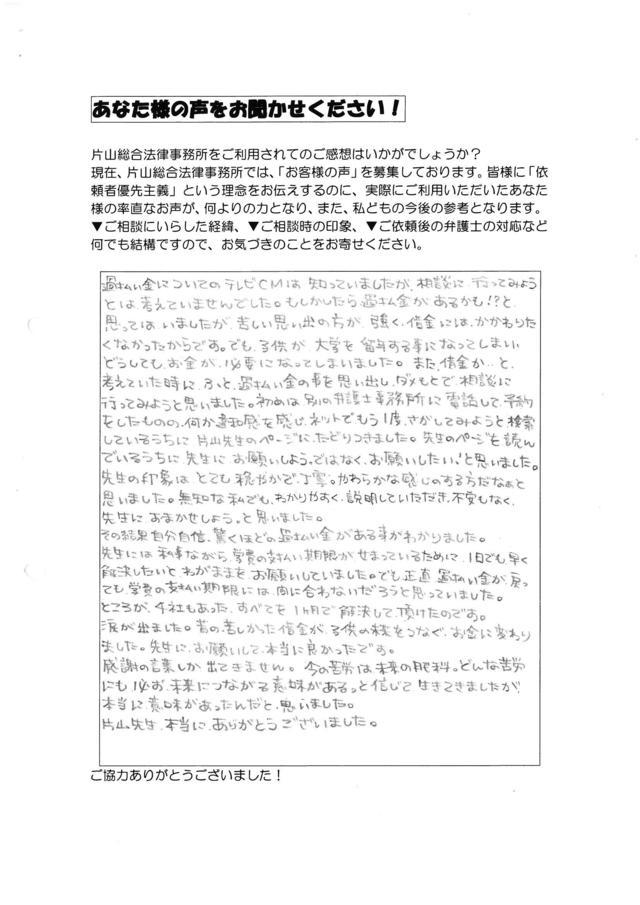 あなた様の声をお聞かせください！
片山総合法律事務所をご利用されてのご感想はいかがでしょうか？
現在、片山総合法律事務所では、「お客様の声」を募集しております。皆様に「依
頼者優先主義」という理念をお伝えするのに、実際にご利用いただいたあなた
様の率直なお声が、何よりの力となり、また、私どもの今後の参考となります。
▼ご相談にいらした経緯、▼ご相談時の印象、▼ご依頼後の弁護士の対応など
何でも結構ですので、お気づきのことをお寄せください。
過払い金についてのテレビCMは知っていましたが、相談に行ってみよう
とは考えていませんでした。もしかしたら過払金があるかも!?と、
思ってはいましたが、苦しい思い出の方が強く、借金には、かかわりた
くなかったからです。でも、子供が大学を留年する事になってしまい
どうしてもお金が必要になってしまいました。また、借金か…と、
考えていた時に、ふっと、過払い金の事を思い出し、ダメもとで相談に
行ってみようと思いました。初めは別の弁護士事務所に電話して、予約
をしたものの、何か違和感を感じ、ネットでもう1度、さがしてみようと検索
しているうちに片山先生のページに、たどりつきました。先生のページを読ん
でいるうちに先生にお願いしよう。ではなく、お願いしたい、と思いました。
先生の印象はとても穏やかで、丁寧。やわらかな感じのする方だなぁと
思いました。無知な私でも、わかりやすく、説明していただき、不安もなく、
先生におまかせしよう。と思いました。
その結果自分自信、驚くほどの過払い金がある事がわかりました。
先生には私事ながら、学費の支払い期限がせまっているために、1日でも早く
解決したいと、わがままを、お願いしていました。でも、正直過払い金が、戻っ
ても、学費の支払期限には間に合わないだろうと思っていました。
ところが、4社もあった、すべてを1ヶ月で解決して頂けたのです。
涙が出ました。昔の苦しかった借金が、子供の未来をつなぐ、お金に変わり
ました。先生に、お願いして、本当に良かったです。
感謝の言葉しか出てきません。今の苦労は未来の肥料。どんな苦労
にも必ず、未来につながる意味がある。と信じて生きてきましたが
本当に、意味があったんだと、思いました。
片山先生、本当に、ありがとうございました。
ご協力ありがとうございました！